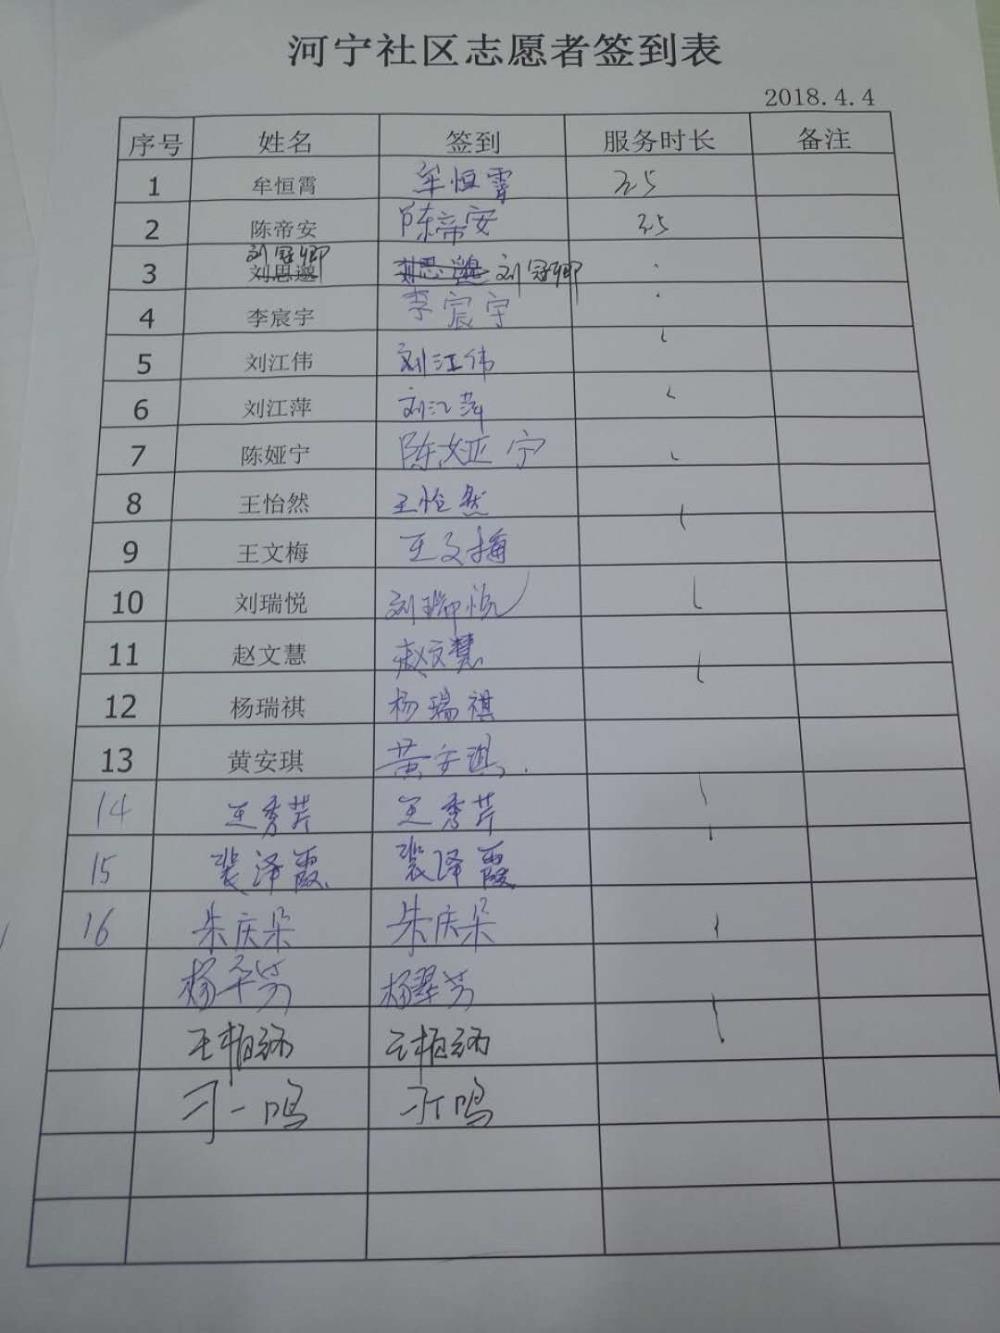 河宁社区志愿者签到表
2018.4.4
序号 姓名 签到 服务时长 备注
1 牟恒霄 牟恒霄 2.5
2 陈帝安 陈帝安 2.5
刘冠卿
3 刘思邈 刘思邈 刘冠卿
4 李宸宇 李宸宇
5 刘江伟 刘江伟
6 刘江萍 刘江萍
7 陈娅宁 陈娅宁
8 王怡然 王怡然
9 王文梅 王文梅
10 刘瑞悦 刘瑞悦
11 赵文慧 赵文慧
12 杨瑞祺 杨瑞祺
13 黄安琪 黄安琪.
14 王秀芹 王秀芹
15 裴泽霞 裴泽霞
16 朱庆朵 朱庆朵
杨翠芳 杨翠芳
王柏 王柏
刁一鸣 刁一鸣